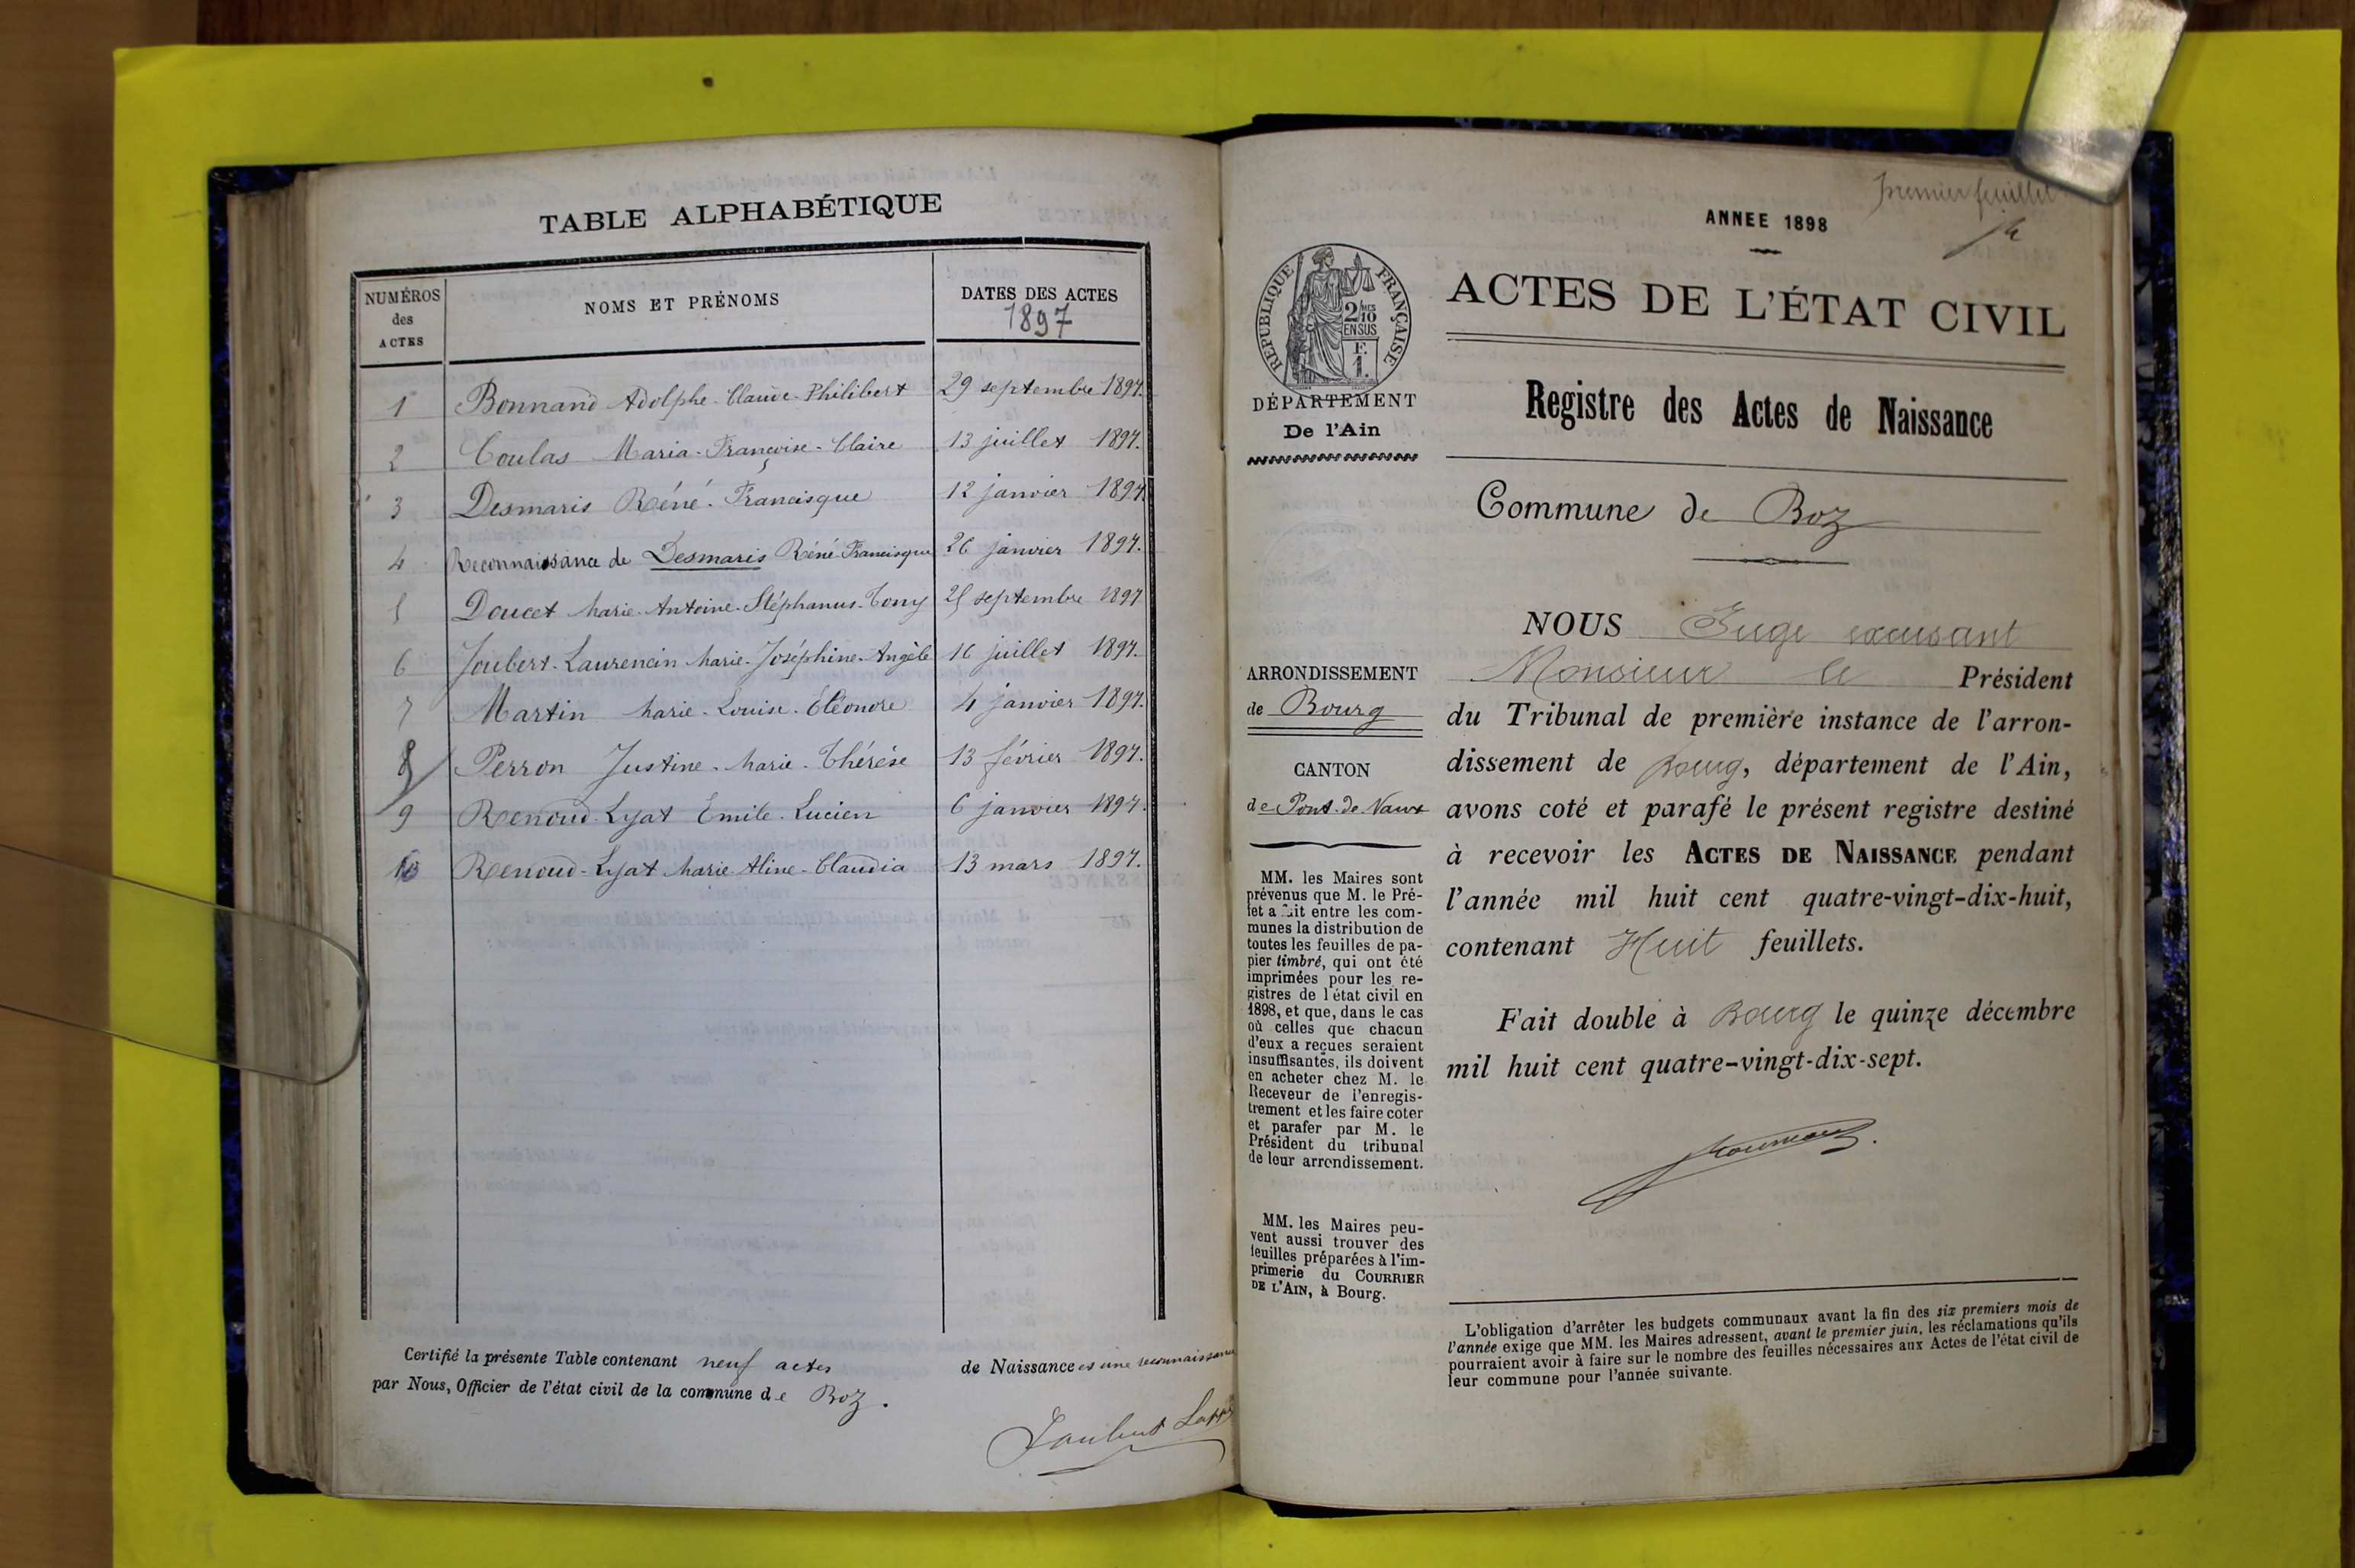 TABLE ALPHABÉTIQUE
NUMÉROS des ACTES
NOMS ET PRÉNOMS
DATES DES ACTES
1897
1 Bonnand Adolphe-Claude-Philibert 29 septembre 1897.
2 Coulas Maria-Françoise-Claire 13 juillet 1897.
3 Desmaris Réné-Francisque 12 janvier 1897
4 Reconnaissance de Desmaris Réné-Francisque 26 janvier 1897.
5 Doucet Marie-Antoine-Stéphanus-Tony 25 septembre 1897
6 Joubert-Laurencin Marie-Joséphine-Angèle 16 juillet 1897.
7 Martin Marie-Louise-Eléonore 4 janvier 1897.
8 Perron Justine-Marie-Thérèse 13 février 1897.
9 Renoud-Lyat Emile-Lucien 6 janvier 1897.
10 Renoud-Lyat Marie-Aline-Claudia 13 mars 1897.
Certifié la présente Table contenant neuf actes de Naissance et une reconnaissance
par Nous, Officier de l'état civil de la commune de Boz.
Joubert
Premier feuillet
ANNEE 1898
RÉPUBLIQUE FRANÇAISE
2/10 EN SUS
F. 1.
ACTES DE L'ÉTAT CIVIL
DÉPARTEMENT
De l'Ain
Registre des Actes de Naissance
Commune de Boz
ARRONDISSEMENT
de Bourg
CANTON
de Pont-de-Vaux
MM. les Maires sont
prévenus que M. le Pré-
fet a fait entre les com-
munes la distribution de
toutes les feuilles de pa-
pier timbré, qui ont été
imprimées pour les re-
gistres de l'état civil en
1898, et que, dans le cas
où celles que chacun
d'eux a reçues seraient
insuffisantes, ils doivent
en acheter chez M. le
Receveur de l'enregis-
trement et les faire coter
et parafer par M. le
Président du tribunal
de leur arrondissement.
MM. les Maires peu-
vent aussi trouver des
feuilles préparées à l'im-
primerie du COURRIER
DE L'AIN, à Bourg.
NOUS Juge excusant
Monsieur le Président
du Tribunal de première instance de l'arron-
dissement de Bourg, département de l'Ain,
avons coté et parafé le présent registre destiné
à recevoir les ACTES DE NAISSANCE pendant
l'année mil huit cent quatre-vingt-dix-huit,
contenant Huit feuillets.
Fait double à Bourg le quinze décembre
mil huit cent quatre-vingt-dix-sept.
L'obligation d'arrêter les budgets communaux avant la fin des six premiers mois de
l'année exige que MM. les Maires adressent, avant le premier juin, les réclamations qu'ils
pourraient avoir à faire sur le nombre des feuilles nécessaires aux Actes de l'état civil de
leur commune pour l'année suivante.